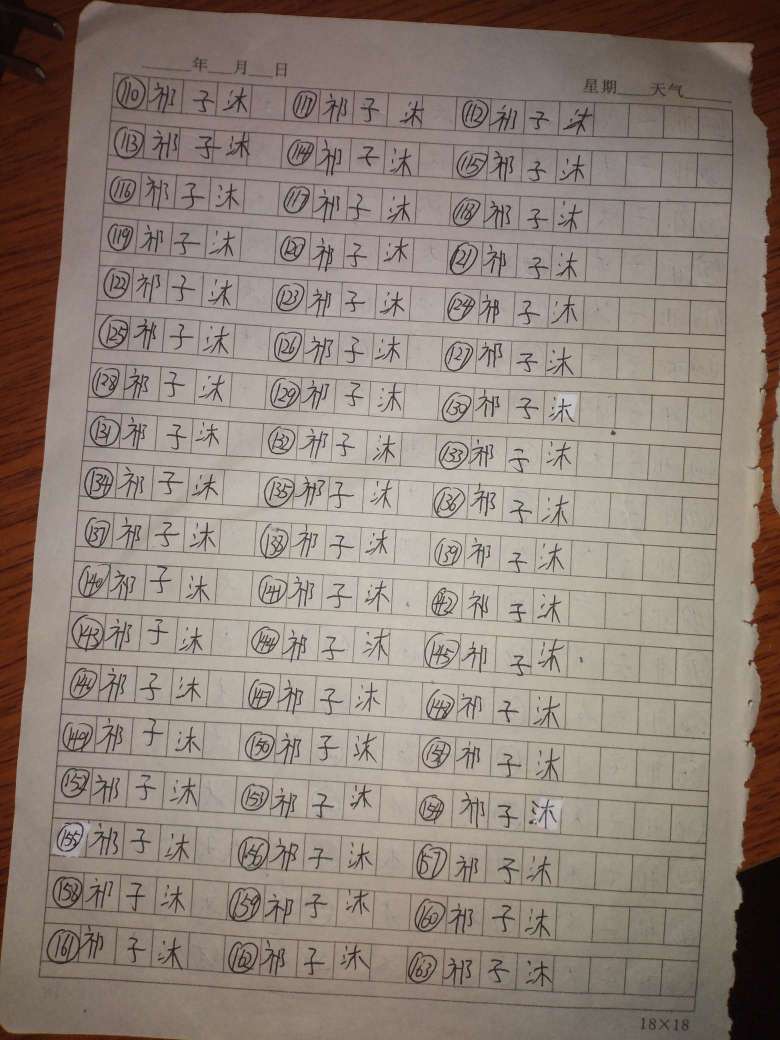 年 月 日
星期 天气
⑩⑪⓪ 祁子沐 111 祁子沐 112 祁子沐
113 祁子沐 114 祁子沐 115 祁子沐
116 祁子沐 117 祁子沐 118 祁子沐
119 祁子沐 120 祁子沐 121 祁子沐
122 祁子沐 123 祁子沐 124 祁子沐
125 祁子沐 126 祁子沐 127 祁子沐
128 祁子沐 129 祁子沐 130 祁子沐
131 祁子沐 132 祁子沐 133 祁子沐
134 祁子沐 135 祁子沐 136 祁子沐
137 祁子沐 138 祁子沐 139 祁子沐
140 祁子沐 141 祁子沐 142 祁子沐
143 祁子沐 144 祁子沐 145 祁子沐
146 祁子沐 147 祁子沐 148 祁子沐
149 祁子沐 150 祁子沐 151 祁子沐
152 祁子沐 153 祁子沐 154 祁子沐
155 祁子沐 156 祁子沐 157 祁子沐
158 祁子沐 159 祁子沐 160 祁子沐
161 祁子沐 162 祁子沐 163 祁子沐
18×18